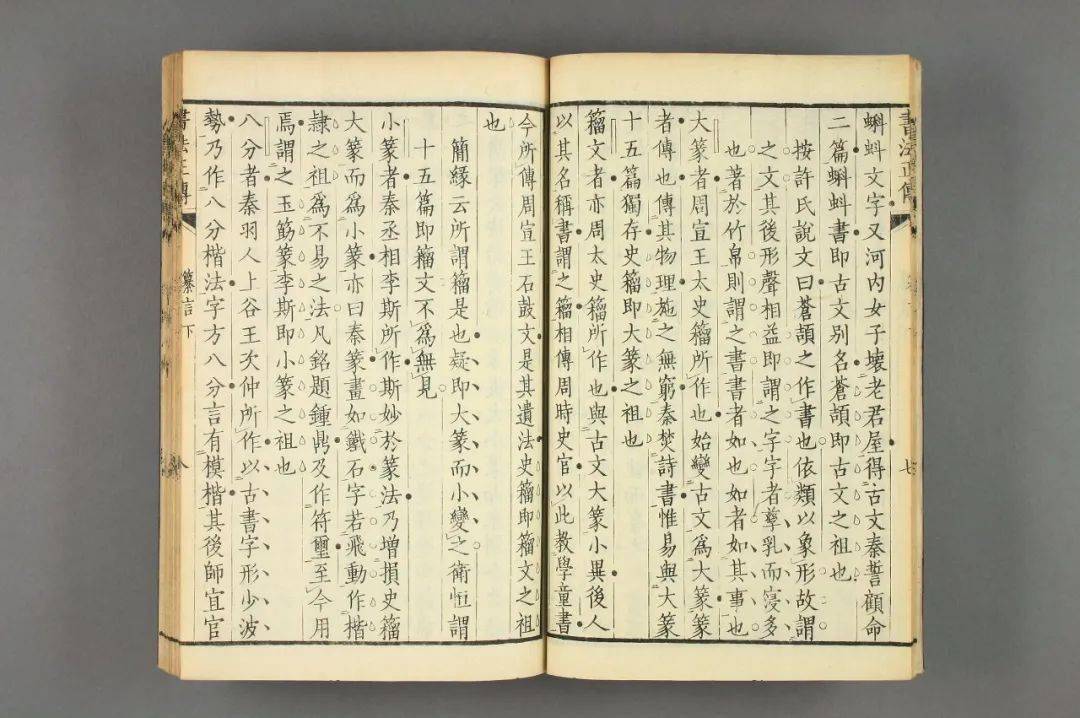 蝌蚪文字又河内女子壊老君屋得古文秦誓顧命
二篇蝌蚪書即古文别名蒼頡即古文之祖也
按許氏說文曰蒼頡之作書也依類以象形故謂
之文其後形聲相益即謂之字字者孳乳而寖多
也著於竹帛則謂之書書者如也如者如其事也
大篆者周宣王太史籀所作也始變古文爲大篆篆
者傳也傳其物理施之無窮秦焚詩書惟易與大篆
十五篇獨存史籀即大篆之祖也
籀文者亦周太史籀所作也與古文大篆小異後人
以其名稱書謂之籀相傳周時史官以此教學童書
今所傳周宣王石鼓文是其遺法史籀即籀文之祖
也
簡緣云所謂籀是也疑即大篆而小變之衛恒謂
十五篇即籀文不爲無見
小篆者秦丞相李斯所作斯妙於篆法乃增損史籀
大篆而爲小篆亦曰秦篆畫如鐵石字若飛動作楷
隷之祖爲不易之法凡銘題鍾鼎及作符璽至今用
焉謂之玉筯篆李斯即小篆之祖也
八分者秦羽人上谷王次仲所作以古書字形少波
勢乃作八分楷法字方八分言有模楷其後師宜官
書法正傳
七
書法正傳
纂言下
八